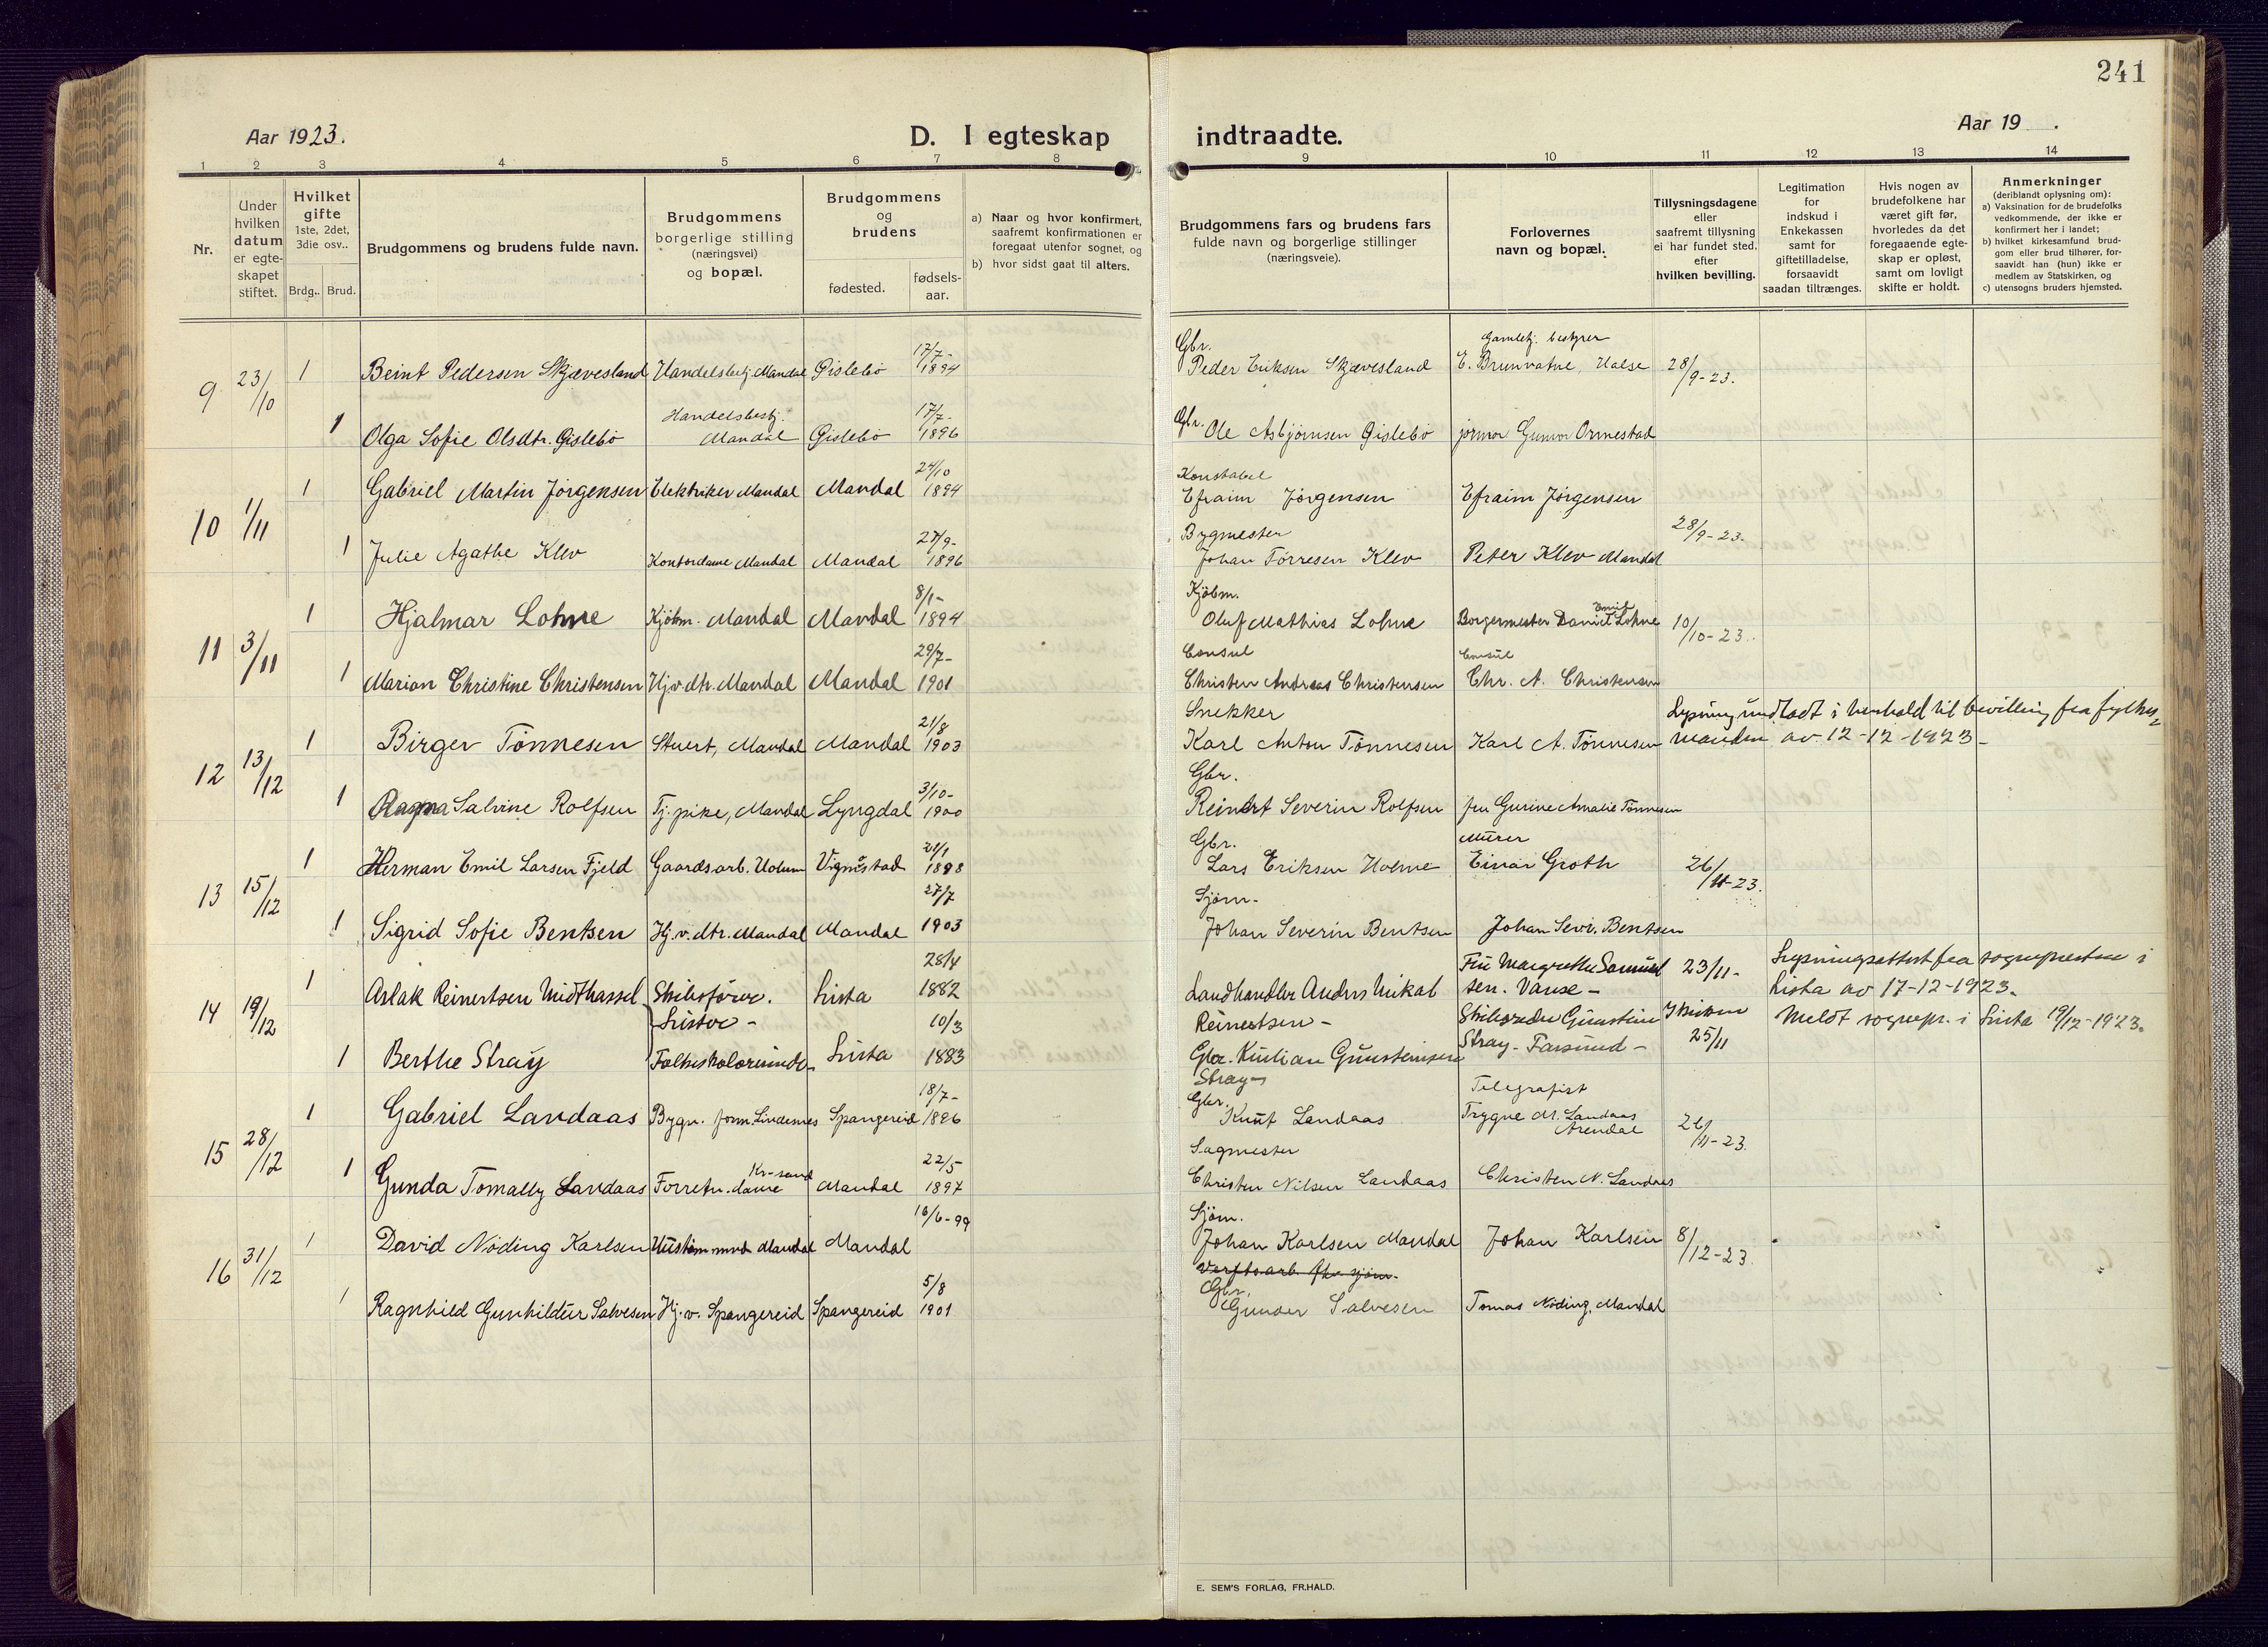 241
Aar 1923.
D. I egteskap indtraadte.
Aar 19 .
1 2 3 4 5 6 7 8 9 10 11 12 13 14
Nr.
Under hvilken datum er egteskapet stiftet.
Hvilket gifte 1ste, 2det, 3die osv..
Brdg.. Brud.
Brudgommens og brudens fulde navn.
Brudgommens borgerlige stilling (næringsvei) og bopæl.
Brudgommens og brudens
fødested.
fødsels-aar.
a) Naar og hvor konfirmert, saafremt konfirmationen er foregaat utenfor sognet, og
b) hvor sidst gaat til alters.
Brudgommens fars og brudens fars fulde navn og borgerlige stillinger (næringsveie).
Forlovernes navn og bopæl.
Tillysningsdagene eller saafremt tillysning ei har fundet sted. efter hvilken bevilling.
Legitimation for indskud i Enkekassen samt for giftetilladelse, forsaavidt saadan tiltrænges.
Hvis nogen av brudefolkene har været gift før, hvorledes da det foregaaende egteskap er opløst, samt om lovligt skifte er holdt.
Anmerkninger (deriblandt oplysning om):
a) Vaksination for de brudefolks vedkommende, der ikke er konfirmert her i landet;
b) hvilket kirkesamfund brudgom eller brud tilhører, forsaavidt han (hun) ikke er medlem av Statskirken, og
c) utensogns bruders hjemsted.
9 23/10 1 Beint Pedersen Skjævesland Handelsbetj. Mandal Gislebo 17/7- 1894 Gbr. Peder Eriksen Skjævesland Gamlehj. bestyrer E. Brunvatne, Halse 28/9-23.
1 Olga Sofie Olsdtr. Gislebo Handelsbestj. Mandal Gislebo 17/7- 1896 Gbr. Ole Asbjörnsen Gislebo jormor Gunvor Ormestad
10 1/11 1 Gabriel Martin Jörgensen Elektriker Mandal Mandal 24/10 1894 Konstabel Efraim Jörgensen Efraim Jörgensen
28/9-23.
1 Julie Agathe Klev Kontordame Mandal Mandal 27/9- 1896 Bygmester Johan Torresen Klev Peter Klev Mandal
11 3/11 1 Hjalmar Lohne Kjöbm. Mandal Mandal 8/1- 1894 Kjöbm. Oluf Mathias Lohne Borgermester Daniel Emil Lohne 10/10-23.
1 Marion Christine Christensen Hj.v. dtr. Mandal Mandal 29/7- 1901 Consul Christen Andreas Christensen Consul Chr. A. Christensen
12 13/12 1 Birger Tönnesen Stuert, Mandal Mandal 21/8 1903 Snekker Karl Anton Tönnesen Karl A. Tönnesen Lysning undladt i henhold til bevilling fra fylkes=
manden av 12-12-1923-
1 Ragna Salvine Rolfsen Tj. pike, Mandal Lyngdal 3/10- 1900 Gbr. Reinert Severin Rolfsen fru Gurine Amalie Tönnesen
13 15/12 1 Herman Emil Larsen Fjeld Gaardsarb. Holum Vigmostad 21/1 1898 Gbr. Lars Eriksen Holme Murer Einar Groth 26/11-23.
1 Sigrid Sofie Bentsen Hj.v. dtr. Mandal Mandal 27/7 1903 Sjöm. Johan Severin Bentsen Johan Sevr. Bentsen
14 19/12 1 Aslak Reinertsen Midthassel Skibsförer. Listor - Lista 28/4 1882 Landhandler Anders Mikal Reinertsen - Fru Margrethe Samuelsen. Vanse - 23/11-
Lysningsattest fra sognepresten i
Lista av 17-12-1923.
Meldt sognepr. i Lista 19/12-1923.
1 Berthe Stray Lista 10/3 1883 Gbr. Kristian Gunsteinsen Stray - Skibsreder Gunstein Stray - Farsund - 25/11
15 28/12 1 Gabriel Landaas Bygn. form. Lindesnes Spangereid 18/7- 1896 Gbr. Knut Landaas Telegrafist Trygve M. Landaas Arendal 26/11-23.
1 Gunda Tomally Landaas Forretn. dame Kr-sand Mandal 22/5- 1897 Sagmester Christen Nilsen Landaas Christen N. Landaas
16 31/12 1 David Nöding Karlsen Mandal Mandal 16/6-99 Sjöm. Johan Karlsen Mandal Johan Karlsen 8/12-23.
Verftsarb. fhv. sjöm.
1 Ragnhild Gunhildur Salvesen Hj.v. Spangereid Spangereid 5/8 1901 Gbr. Gunder Salvesen Tomas Nöding, Mandal
E. SEM'S FORLAG, FR.HALD.